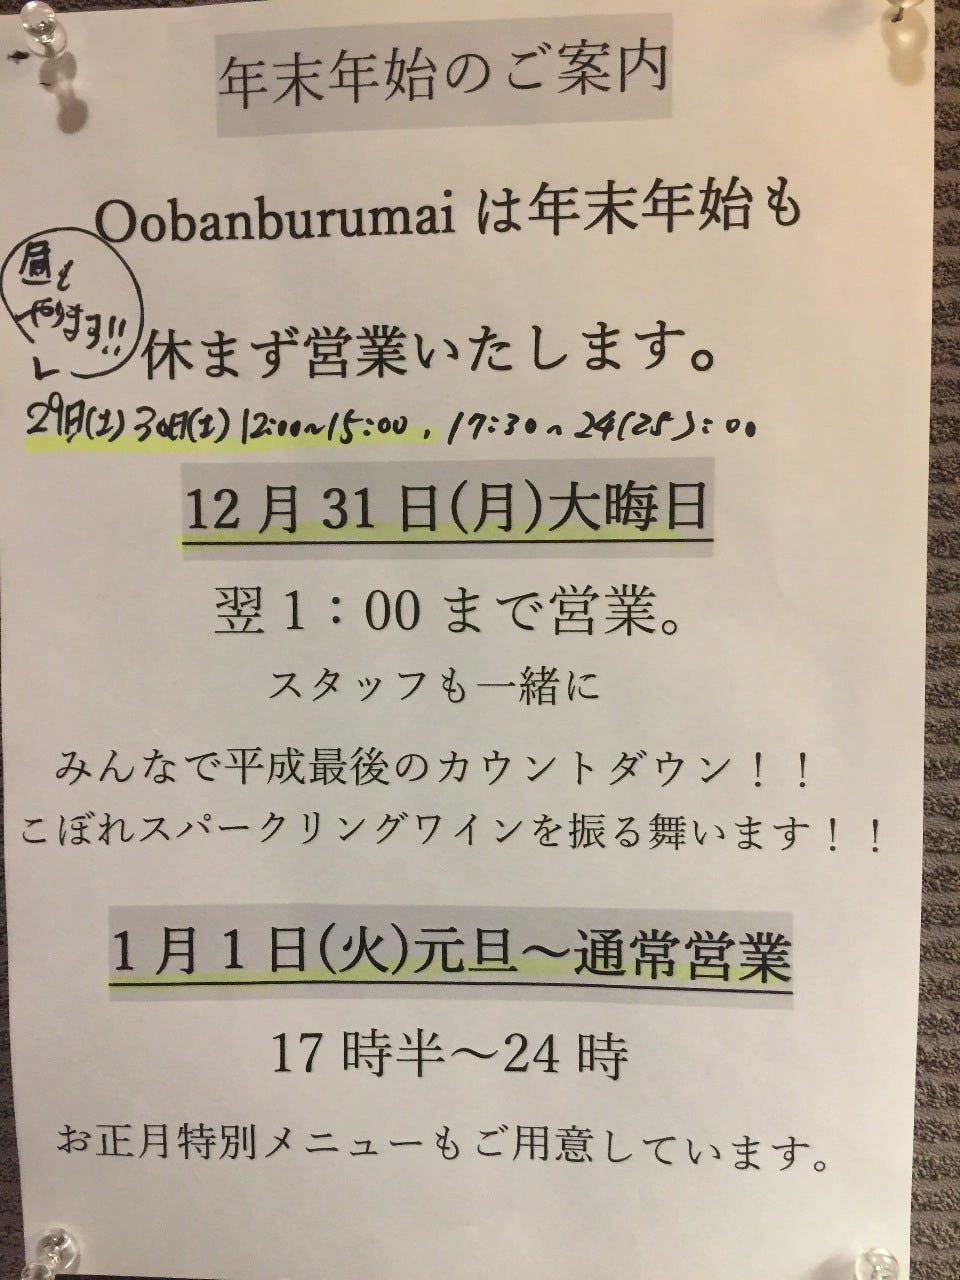 年末年始のご案内
Oobanburumai は年末年始も
昼も
やります!!
休まず営業いたします。
29日(土) 30日(土) 12:00~15:00, 17:30~24(25):00
12 月 31 日(月)大晦日
翌 1：00 まで営業。
スタッフも一緒に
みんなで平成最後のカウントダウン！！
こぼれスパークリングワインを振る舞います！！
1 月 1 日(火)元旦～通常営業
17 時半～24 時
お正月特別メニューもご用意しています。